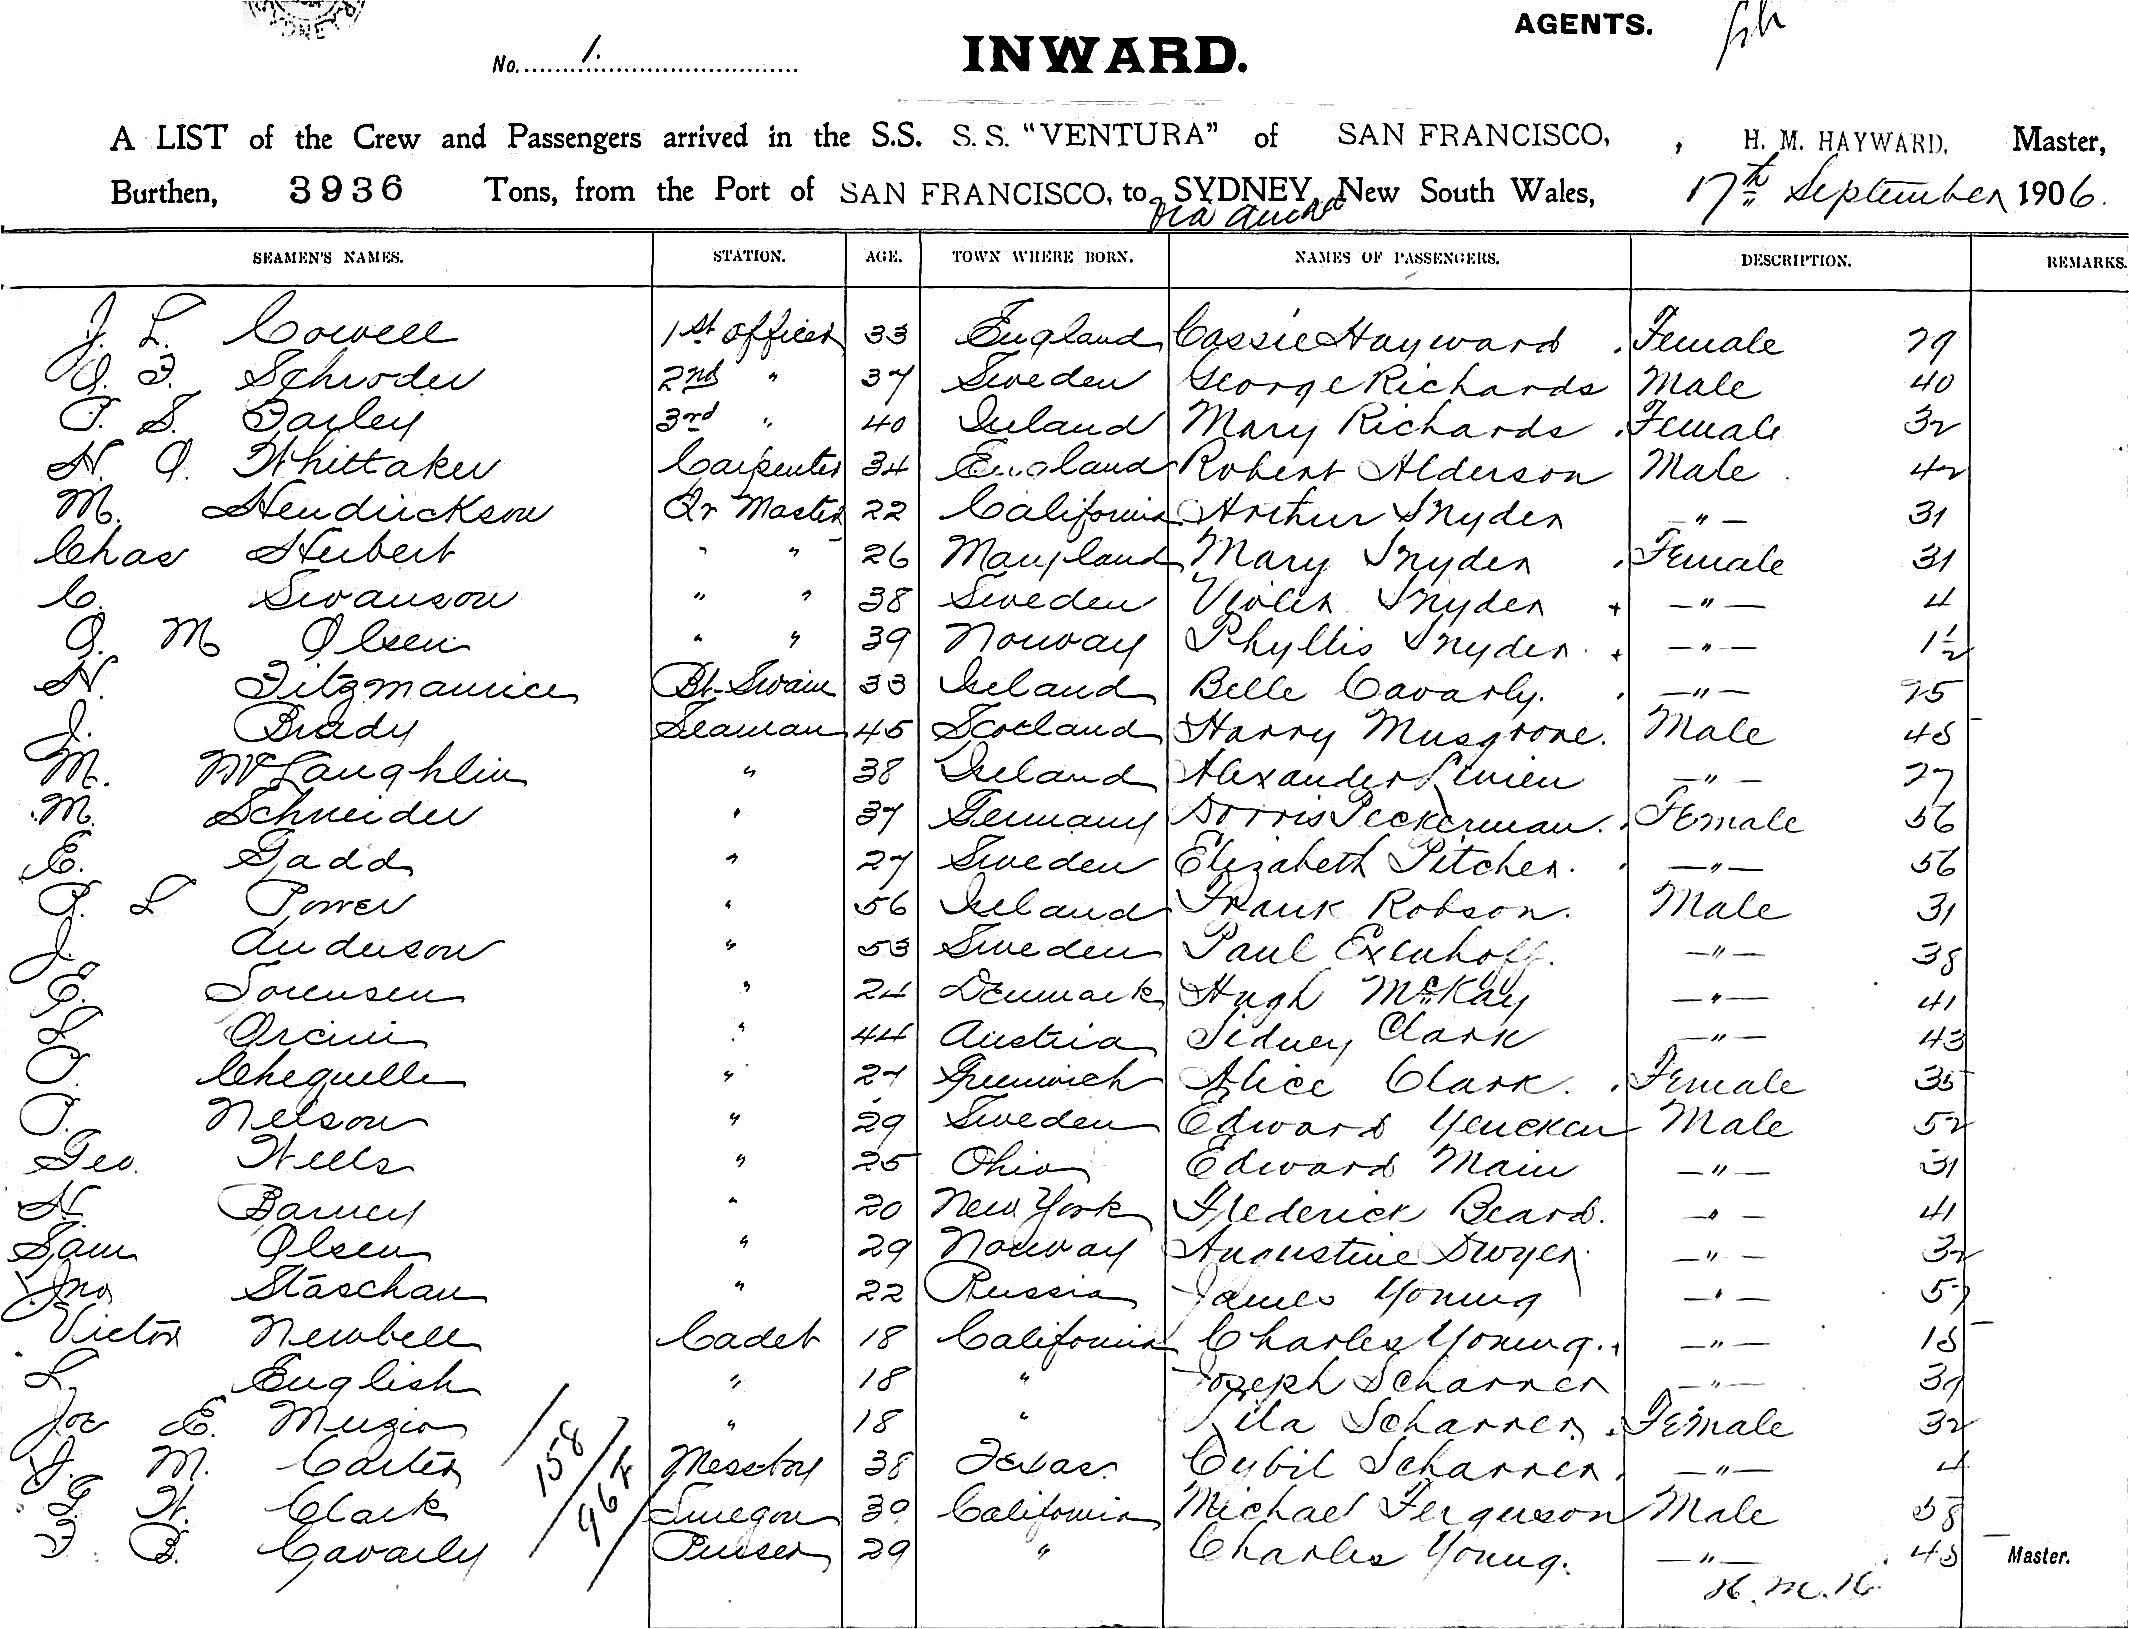 ONE
AGENTS.
No. 1.
INWARD.
A LIST of the Crew and Passengers arrived in the S.S. S. S. "VENTURA" of SAN FRANCISCO, , H. M. HAYWARD, Master,
Burthen, 3936 Tons, from the Port of SAN FRANCISCO, to SYDNEY, New South Wales, 17th September 1906.
via Auckd
SEAMEN'S NAMES. STATION. AGE. TOWN WHERE BORN. NAMES OF PASSENGERS. DESCRIPTION. REMARKS.
J. L. Cowell 1st Officer 33 England Cassie Hayward . Female 29
O. F. Schroder 2nd " 37 Sweden George Richards Male 40
P. S. Farley 3rd " 40 Ireland Mary Richards . Female 32
H. O. Whittaker Carpenter 34 England Robert Alderson Male 42
M. Hendrickson Qr Master 22 California Arthur Snyder — " — 31
Chas Hubert " " 26 Maryland Mary Snyder . Female 31
C. Swanson " " 38 Sweden Snyder + — " — 4
O. M Olsen " " 39 Norway Phyllis Snyder . + — " — 1½
H. Fitzmaurice Bt. Swain 33 Ireland Belle Cavarly. . — " — 25
J. Brady Seaman 45 Scotland Harry Musgrove. Male 48
M. McLaughlin " 38 Ireland Alexander — " — 27
M. Schneider " 37 Germany Dorris Peckerman. . Female 56
E. Gadd " 27 Sweden Elizabeth Pitcher. . — " — 56
P. L Power " 56 Ireland Frank Robson. Male 31
J. Anderson " 53 Sweden Paul Exenhoff. — " — 38
E. Sorensen " 24 Denmark Hugh McKay — " — 41
L. Orcini " 44 Austria Sidney Clark — " — 43
T. Chequelle " 27 Greenwich Alice Clark. . Female 35
P. Nelson " 29 Sweden Edward Yencken Male 52
Geo. Wells " 25 Ohio Edward Main — " — 31
H. Barney " 20 New York Frederick Beard. — " — 41
Sam Olsen " 29 Norway Augustine Dwyer. — " — 32
Jno Staschan " 22 Russia James Young — " — 57
Victor Newbell Cadet 18 California Charles Young. . — " — 18
L. English " 18 " Joseph Scharrer — " — 39
Joe E. Muzio " 18 " Lila Scharrer . Female 32
J. M. Carter Messboy 38 Texas. Cybil Scharrer . — " — 4
G. W. Clark Surgeon 39 California Michael Ferguson Male 58
F. B. Cavarly Purser 29 " Charles Young. — " — 48 Master.
158
H. M. H.